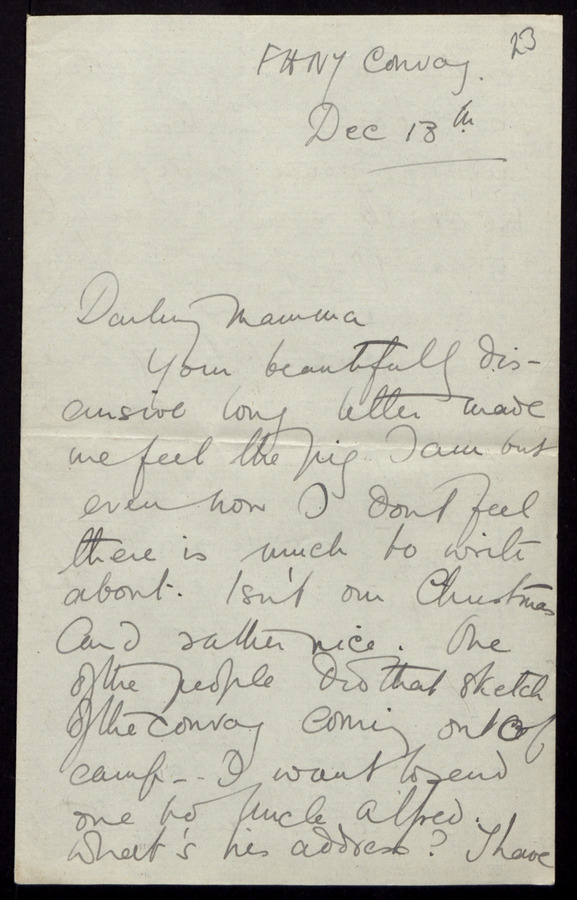 23
FANY Convoy.
Dec 13th
Darling Mamma
Your beautifully dis-
cursive long letter made
me feel the pig I am but
even now I don't feel
there is much to write
about. Isn't our Christmas
Card rather nice. One
of the people did that sketch
of the convoy coming out of
camp - - I want to send
one to Uncle Alfred.
What's his address? I have